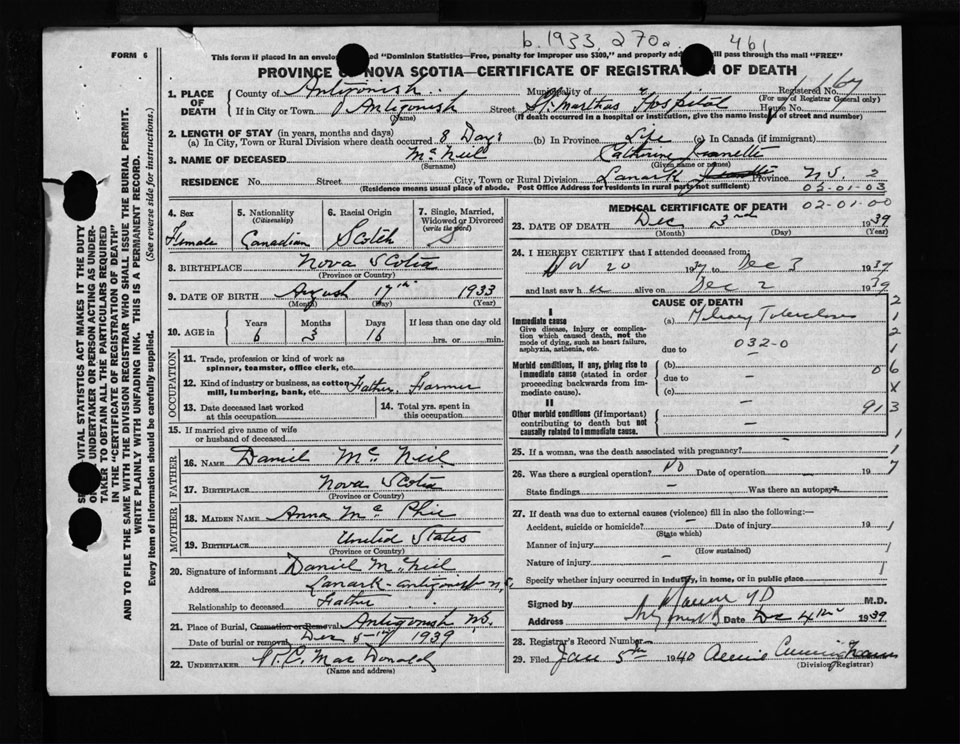 b. 1933, 270a 461
FORM 6
This form if placed in an envelope "Dominion Statistics—Free, penalty for improper use $300," and properly will pass through the mail "FREE"
PROVINCE OF NOVA SCOTIA—CERTIFICATE OF REGISTRATION OF DEATH
1. PLACE OF DEATH
County of Antigonish Municipality of Registered No.
(For use of Registrar General only)
If in City or Town Antigonish Street St. Marthas Hospital House No.
(Name) (If death occurred in a hospital or institution, give the name instead of street and number)
2. LENGTH OF STAY (in years, months and days)
(a) In City, Town or Rural Division where death occurred 8 Days (b) In Province Life (c) In Canada (if immigrant)
3. NAME OF DECEASED McNeil Catherine
(Surname) (Given name or names)
RESIDENCE No. Street City, Town or Rural Division Lanark Province N.S. 2
(Residence means usual place of abode. Post Office Address for residents in rural parts not sufficient) 02-01-03
02-01-00
SECTION VITAL STATISTICS ACT MAKES IT THE DUTY
UNDERTAKER OR PERSON ACTING AS UNDER-
TAKER TO OBTAIN ALL THE PARTICULARS REQUIRED
IN THE "CERTIFICATE OF REGISTRATION OF DEATH"
AND TO FILE THE SAME WITH THE DIVISION REGISTRAR WHO SHALL ISSUE THE BURIAL PERMIT.
WRITE PLAINLY WITH UNFADING INK. THIS IS A PERMANENT RECORD.
Every item of information should be carefully supplied. (See reverse side for instructions.)
4. Sex 5. Nationality (Citizenship) 6. Racial Origin 7. Single, Married, Widowed or Divorced (write the word)
Female Canadian Scotch S
8. BIRTHPLACE Nova Scotia
(Province or Country)
9. DATE OF BIRTH August 17th 1933
(Month) (Day) (Year)
10. AGE in Years Months Days If less than one day old
6 3 16 hrs. or min.
OCCUPATION
11. Trade, profession or kind of work as spinner, teamster, office clerk, etc.
12. Kind of industry or business, as cotton mill, lumbering, bank, etc. Father, Farmer
13. Date deceased last worked at this occupation
14. Total yrs. spent in this occupation
15. If married give name of wife or husband of deceased
FATHER
16. NAME Daniel McNeil
17. BIRTHPLACE Nova Scotia
(Province or Country)
MOTHER
18. MAIDEN NAME Anna McPhie
19. BIRTHPLACE United States
(Province or Country)
20. Signature of informant Daniel McNeil
Address Lanark - Antigonish N.S.
Relationship to deceased Father
21. Place of Burial, Cremation or Removal Antigonish N.S.
Date of burial or removal Dec 5-17 1939
22. UNDERTAKER R.C. MacDonald
(Name and address)
MEDICAL CERTIFICATE OF DEATH
23. DATE OF DEATH Dec 3rd 1939
(Month) (Day) (Year)
24. I HEREBY CERTIFY that I attended deceased from
Nov 20 1939 to Dec 3 1939
and last saw h alive on Dec 2 1939
CAUSE OF DEATH
I
Immediate cause (a) Miliary Tuberculosis
Give disease, injury or complication which caused death, not the mode of dying, such as heart failure, asphyxia, asthenia, etc.
due to 032-0
Morbid conditions, if any, giving rise to immediate cause (stated in order proceeding backwards from immediate cause).
(b)
due to
(c)
II
Other morbid conditions (if important) contributing to death but not causally related to immediate cause.
2
1
2
1
0 6
X
91 3
1
25. If a woman, was the death associated with pregnancy?
26. Was there a surgical operation? No Date of operation 19
State findings Was there an autopsy?
27. If death was due to external causes (violence) fill in also the following:—
Accident, suicide or homicide? Date of injury 19
(State which)
Manner of injury
(How sustained)
Nature of injury
Specify whether injury occurred in industry, in home, or in public place
Signed by M.D.
Address Date Dec 4th 1939
28. Registrar's Record Number
29. Filed Jan 5th 1940
(Division Registrar)